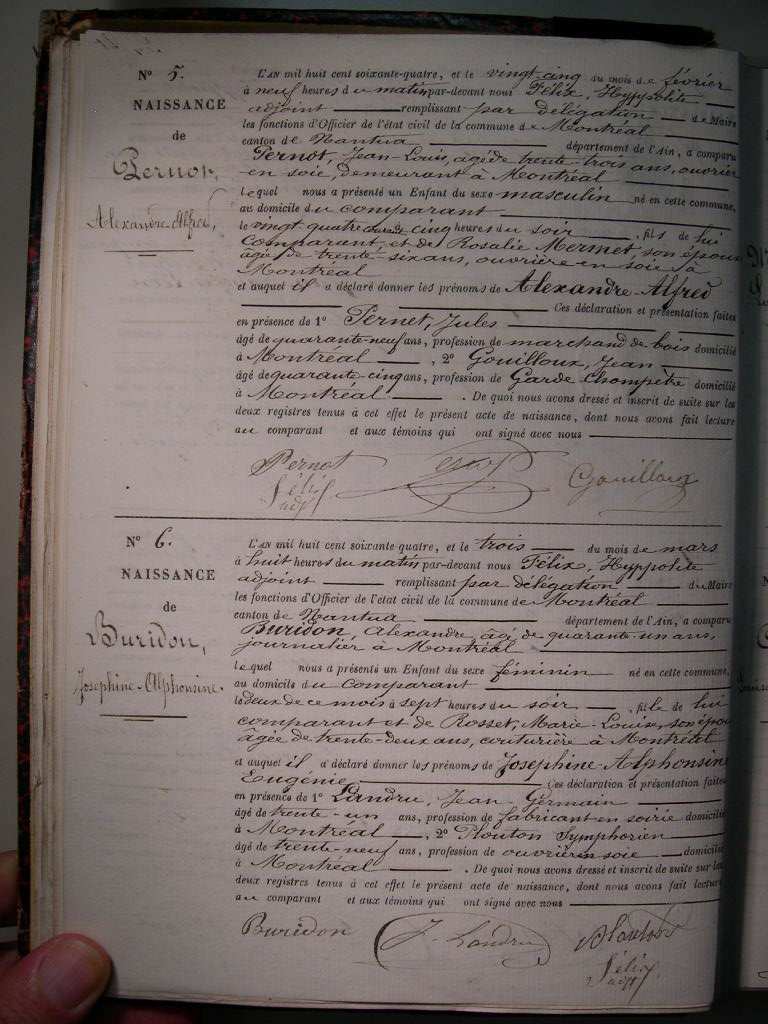 N° 5.
NAISSANCE
de
Pernot,
Alexandre Alfred,
L'AN mil huit cent soixante-quatre, et le vingt-cinq du mois de février
à neuf heures du matin par-devant nous Félix, Hyppolite
adjoint remplissant par délégation du Maire
les fonctions d'Officier de l'état civil de la commune de Montréal
canton de Nantua département de l'Ain, a comparu
Pernot, Jean-Louis, agé de trente-trois ans, ouvrier
en soie, demeurant à Montréal
lequel nous a présenté un Enfant du sexe masculin né en cette commune,
au domicile du comparant
le vingt quatre à cinq heures du soir, fils de lui
comparant, et de Rosalie Mermet, son épouse
âgée de trente-six ans, ouvrière en soie à
Montréal
et auquel il a déclaré donner les prénoms de Alexandre-Alfred
Ces déclaration et présentation faites
en présence de 1° Pernet, Jules
âgé de quarante-neuf ans, profession de marchand de bois domicilié
à Montréal, 2° Gouilloux, Jean
âgé de quarante-cinq ans, profession de Garde Champêtre domicilié
à Montréal. De quoi nous avons dressé et inscrit de suite sur les
deux registres tenus à cet effet le présent acte de naissance, dont nous avons fait lecture
au comparant et aux témoins qui ont signé avec nous
Pernot Gouilloux
Félix
adjt
N° 6.
NAISSANCE
de
Buridon,
Josephine-Alphonsine.
L'AN mil huit cent soixante-quatre, et le trois du mois de mars
à huit heures du matin par-devant nous Félix, Hyppolite
adjoint remplissant par délégation du Maire
les fonctions d'Officier de l'état civil de la commune de Montréal
canton de Nantua département de l'Ain, a comparu
Buridon, Alexandre, âgé de quarante-un ans,
journalier à Montréal
lequel nous a présenté un Enfant du sexe féminin né en cette commune,
au domicile du comparant
le deux de ce mois à sept heures du soir, fille de lui
comparant et de Rosset, Marie-Louise, son épou
âgée de trente-deux ans, couturière à Montréal
et auquel il a déclaré donner les prénoms de Josephine Alphonsine
Eugénie, Ces déclaration et présentation faites
en présence de 1° Landru, Jean Germain
âgé de trente-un ans, profession de fabricant en soierie domicilié
à Montréal, 2° Plouton Symphorien
âgé de trente-neuf ans, profession de ouvrier en soie domicilié
à Montréal. De quoi nous avons dressé et inscrit de suite sur les
deux registres tenus à cet effet le présent acte de naissance, dont nous avons fait lecture
au comparant et aux témoins qui ont signé avec nous
Buridon J. Landru
Félix
adjt